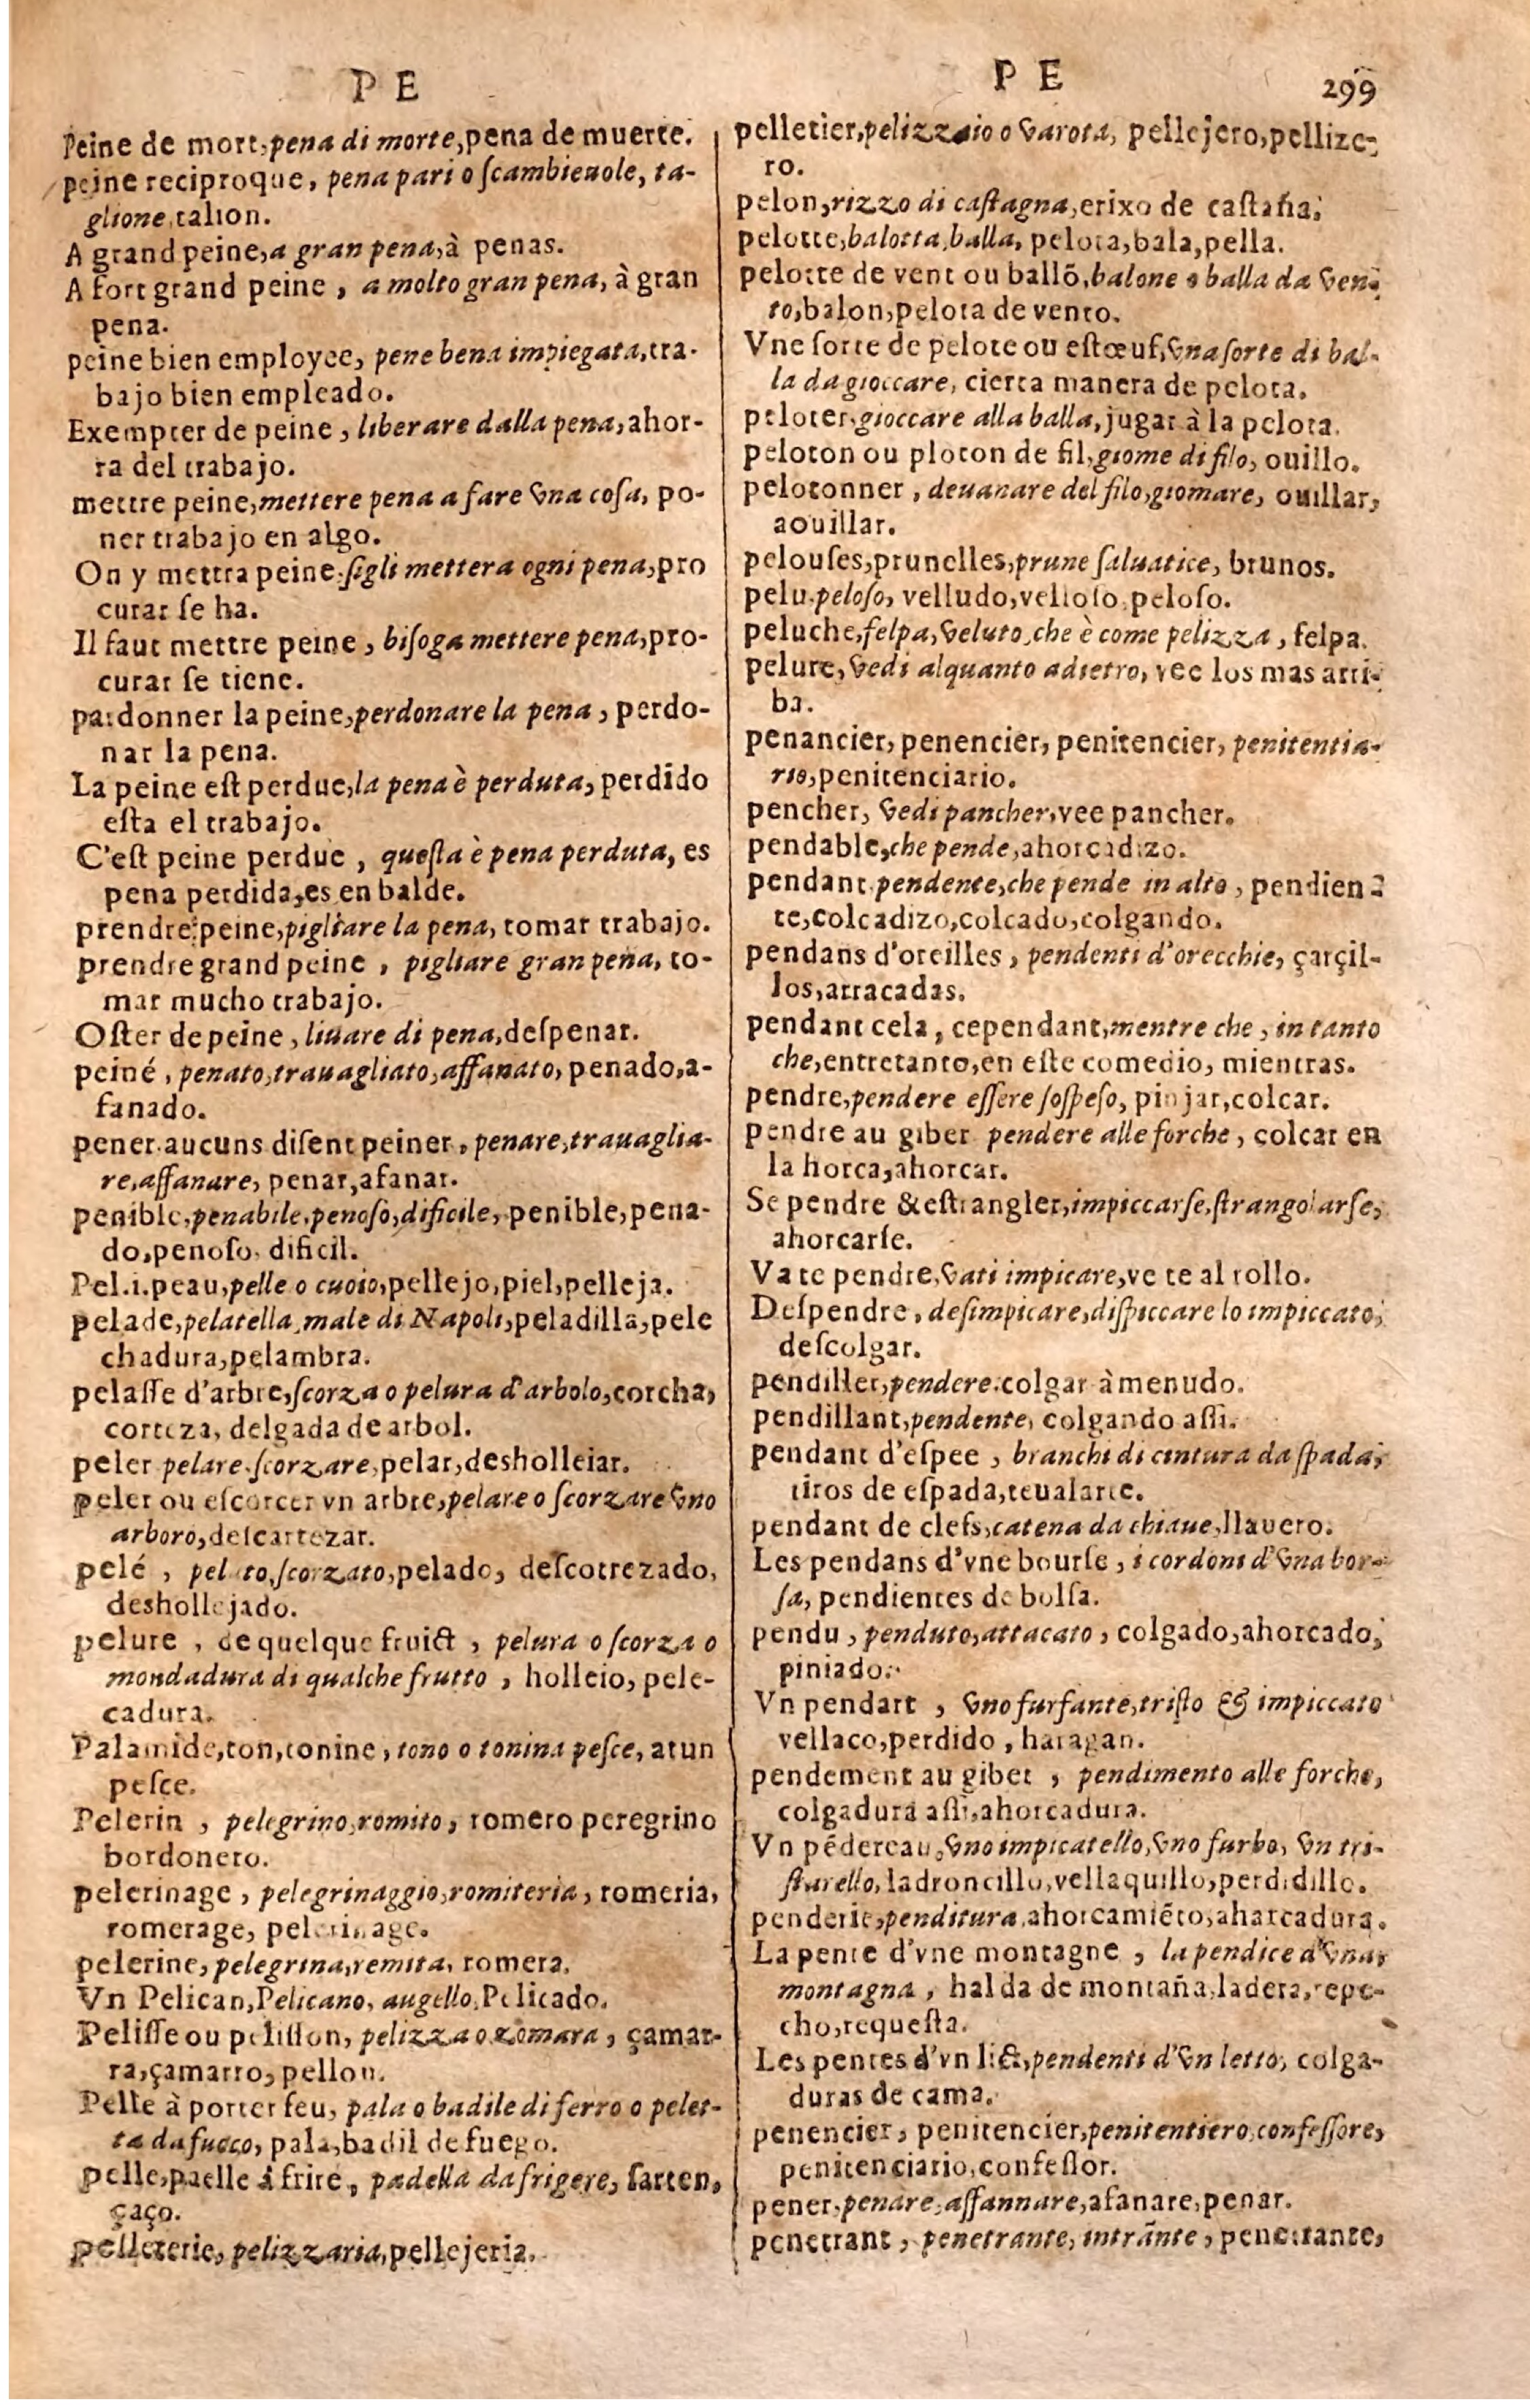 P E
Peine de mort, pena di morte, pena de muerte.
peine reciproque, pena pari o ſcambieuole, ta-
glione, talion.
A grand peine, a gran pena, à penas.
A fort grand peine, a molto gran pena, à gran
pena.
peine bien employee, pene bena impiegata, tra-
bajo bien empleado.
Exempter de peine, liberare dalla pena, ahor-
ra del trabajo.
mettre peine, mettere pena a fare vna coſa, po-
ner trabajo en algo.
On y mettra peine, ſigli mettera ogni pena, pro
curar ſe ha.
Il faut mettre peine, biſoga mettere pena, pro-
curar ſe tiene.
pardonner la peine, perdonare la pena, perdo-
nar la pena.
La peine eſt perdue, la pena è perduta, perdido
eſta el trabajo.
C'eſt peine perdue, queſta è pena perduta, es
pena perdida, es en balde.
prendre peine, pigliare la pena, tomar trabajo.
prendre grand peine, pigliare gran pena, to-
mar mucho trabajo.
Oſter de peine, liuare di pena, deſpenar.
peiné, penato, trauagliato, affanato, penado, a-
fanado.
pener aucuns diſent peiner, penare, trauaglia-
re, affanare, penar, afanar.
penible, penabile, penoſo, dificile, penible, pena-
do, penoſo, dificil.
Pel.i.peau, pelle o cuoio, pellejo, piel, pelleja.
pelade, pelatella, male di Napoli, peladilla, pele
chadura, pelambra.
pelaſſe d'arbre, ſcorza o pelura d'arbolo, corcha,
corteza, delgada de arbol.
peler pelare, ſcorzare, pelar, desholleiar.
peler ou eſcorcer vn arbre, pelare o ſcorzare vno
arboro, deſcartezar.
pelé, peluto, ſcorzato, pelado, deſcotrezado,
deshollejado.
pelure, de quelque fruict, pelura o ſcorza o
mondadura di qualche frutto, holleio, pele-
cadura.
Palamide, ton, tonine, tono o tonina peſce, atun
peſce.
Pelerin, pelegrino, romito, romero peregrino
bordonero.
pelerinage, pelegrinaggio, romiteria, romeria,
romerage, pelerinage.
pelerine, pelegrina, remita, romera.
Vn Pelican, Pelicano, augello, Pelicado.
Peliſſe ou peliſſon, pelizza o zomara, çamar-
ra, çamarro, pellon.
Pelle à porter feu, pala o badile di ferro o pelet-
ta da fuoco, pala, badil de fuego.
pelle, paelle à frire, padella da frigere, ſarten,
çaço.
pelleterie, pelizzaria, pellejeria.
P E 299
pelletier, pelizzaio o varota, pellejero, pellize-
ro.
pelon, rizzo di caſtagna, erixo de caſtaña.
pelotte, balotta, balla, pelota, bala, pella.
pelotte de vent ou ballõ, balone o balla da ven-
to, balon, pelota de vento.
Vne ſorte de pelote ou eſtœuf, vna ſorte di bal-
la da gioccare, cierta manera de pelota.
peloter, gioccare alla balla, jugar à la pelota.
peloton ou ploton de fil, giome di filo, ouillo.
pelotonner, deuanare del filo, giomare, ouillar,
aouillar.
pelouſes, prunelles, prune ſaluatice, brunos.
pelu, peloſo, velludo, velloſo, peloſo.
peluche, felpa, veluto, che è come pelizza, felpa.
pelure, vedi alquanto adietro, vee los mas arri-
ba.
penancier, penencier, penitencier, penitentia-
rio, penitenciario.
pencher, vedi pancher, vee pancher.
pendable, che pende, ahorcadizo.
pendant, pendente, che pende in alto, pendien-
te, colcadizo, colcado, colgando.
pendans d'oreilles, pendenti d'orecchie, çarçil-
los, arracadas.
pendant cela, cependant, mentre che, in tanto
che, entretanto, en eſte comedio, mientras.
pendre, pendere eſſere ſoſpeſo, pinjar, colcar.
pendre au giber pendere alle forche, colcar en
la horca, ahorcar.
Se pendre & eſtrangler, impiccarſe, ſtrangolarſe,
ahorcarſe.
Va te pendre, vati impicare, ve te al rollo.
Deſpendre, deſimpicare, diſpiccare lo impiccato,
deſcolgar.
pendiller, pendere, colgar à menudo.
pendillant, pendente, colgando aſſi.
pendant d'eſpee, branchi di cintura da ſpada,
tiros de eſpada, teualarte.
pendant de clefs, catena da chiaue, llauero.
Les pendans d'vne bourſe, i cordoni d'vna bor-
ſa, pendientes de bolſa.
pendu, penduto, attacato, colgado, ahorcado,
piniado.
Vn pendart, vno furfante, triſto & impiccato
vellaco, perdido, haragan.
pendement au gibet, pendimento alle forche,
colgadura aſſi, ahorcadura.
Vn pẽdereau, vno impicatello, vno furbo, vn tri-
ſtarello, ladroncillo, vellaquillo, perdidillo.
penderie, penditura, ahorcamiẽto, aharcadura.
La pente d'vne montagne, la pendice d'vna
montagna, halda de montaña, ladera, repe-
cho, requeſta.
Les pentes d'vn lict, pendenti d'vn letto, colga-
duras de cama.
penencier, penitencier, penitentiero, confeſſore,
penitenciario, confeſſor.
pener, penare, affannare, afanare, penar.
penetrant, penetrante, intrãnte, penetrante,